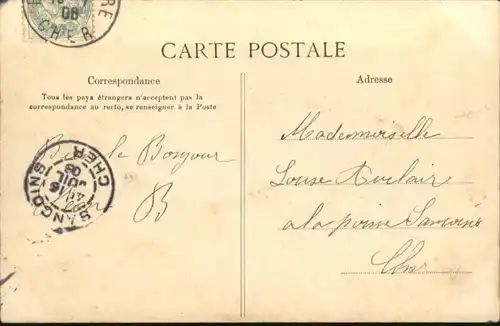 RE
08
CHER
CARTE POSTALE
Correspondance
Tous les pays étrangers n'acceptent pas la
correspondance au recto, se renseigner à la Poste
le Bonjour
B
SANCOINS
CHER
Adresse
Mademoiselle
Louise Auclair
a la poine Sancoins
Cher